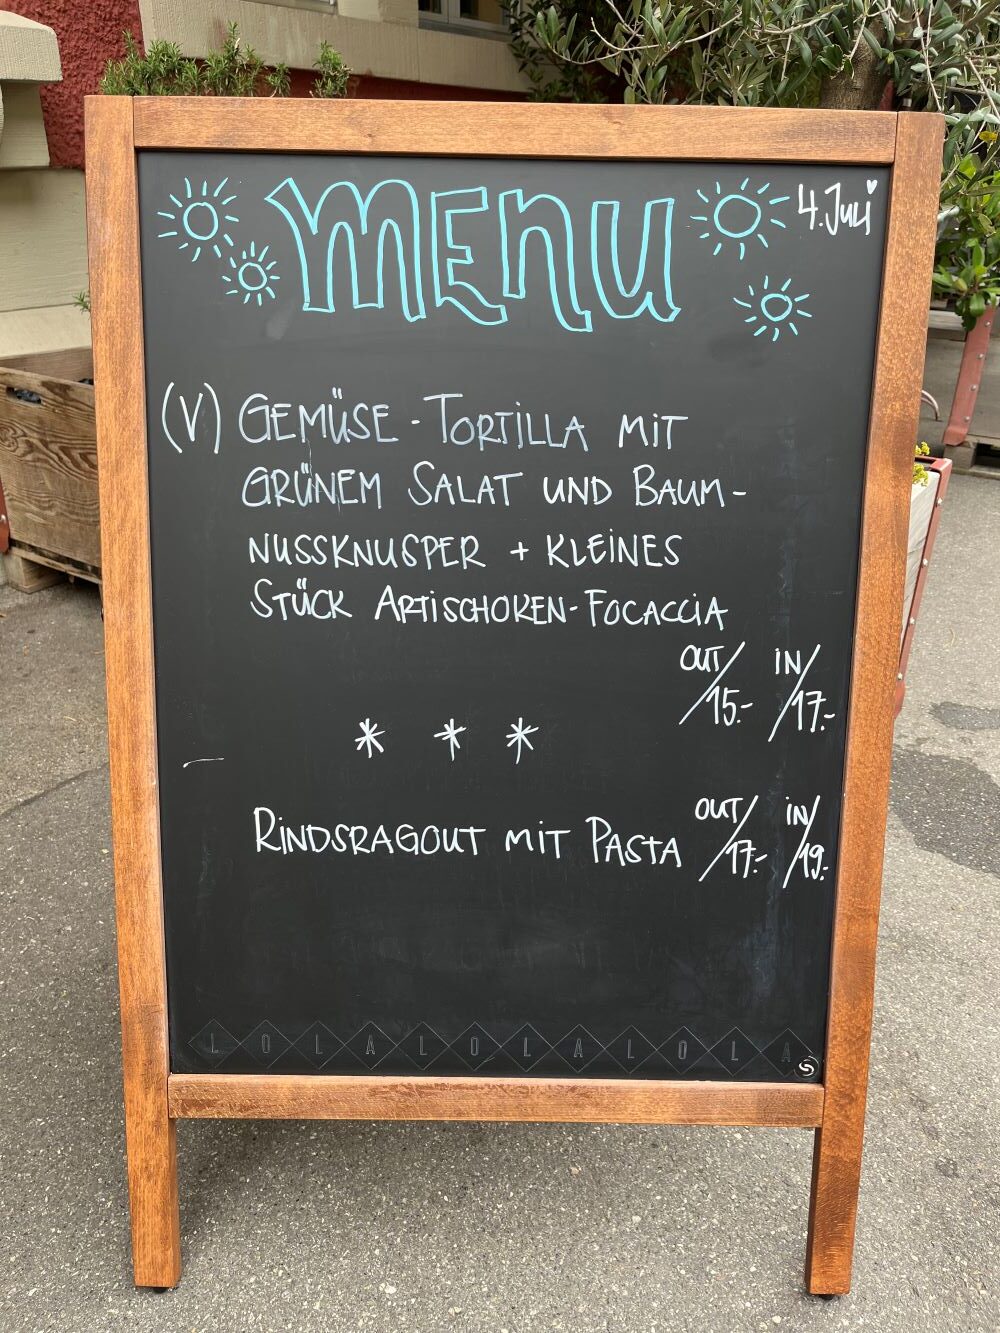 MENU
4. Juli
(V) GEMÜSE - TORTILLA MIT
GRÜNEM SALAT UND BAUM-
NUSSKNUSPER + KLEINES
STÜCK ARTISCHOKEN-FOCACCIA
OUT/15.- IN/17.-
* * *
RINDSRAGOUT MIT PASTA OUT/17.- IN/19.-
LOLALOLALOLA